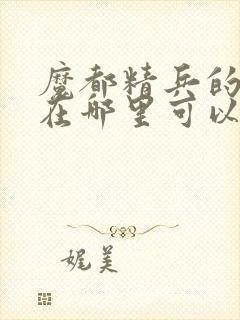 魔都精兵的
在哪里可以
娓美